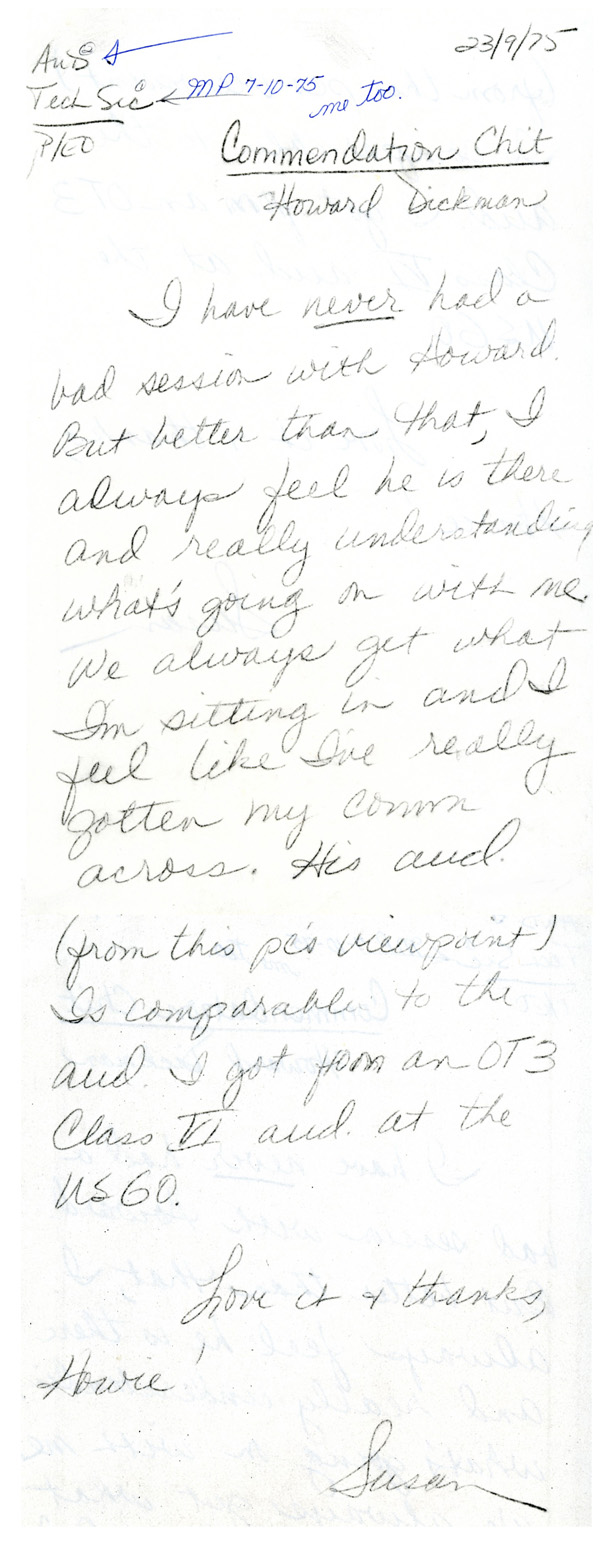 23/9/75
AudS
Tech Sec ← MP 7-10-75
me too.
P/EO
Commendation Chit
Howard Dickman
I have never had a
bad session with Howard.
But better than that, I
always feel he is there
and really understanding
what's going on with me.
We always get what
I'm sitting in and I
feel like I've really
gotten my comm
across. His aud.
(from this pc's viewpoint)
Is comparable to the
aud. I got from an OT3
Class VI aud. at the
USGO.
Love it & thanks,
Howie!
Susan